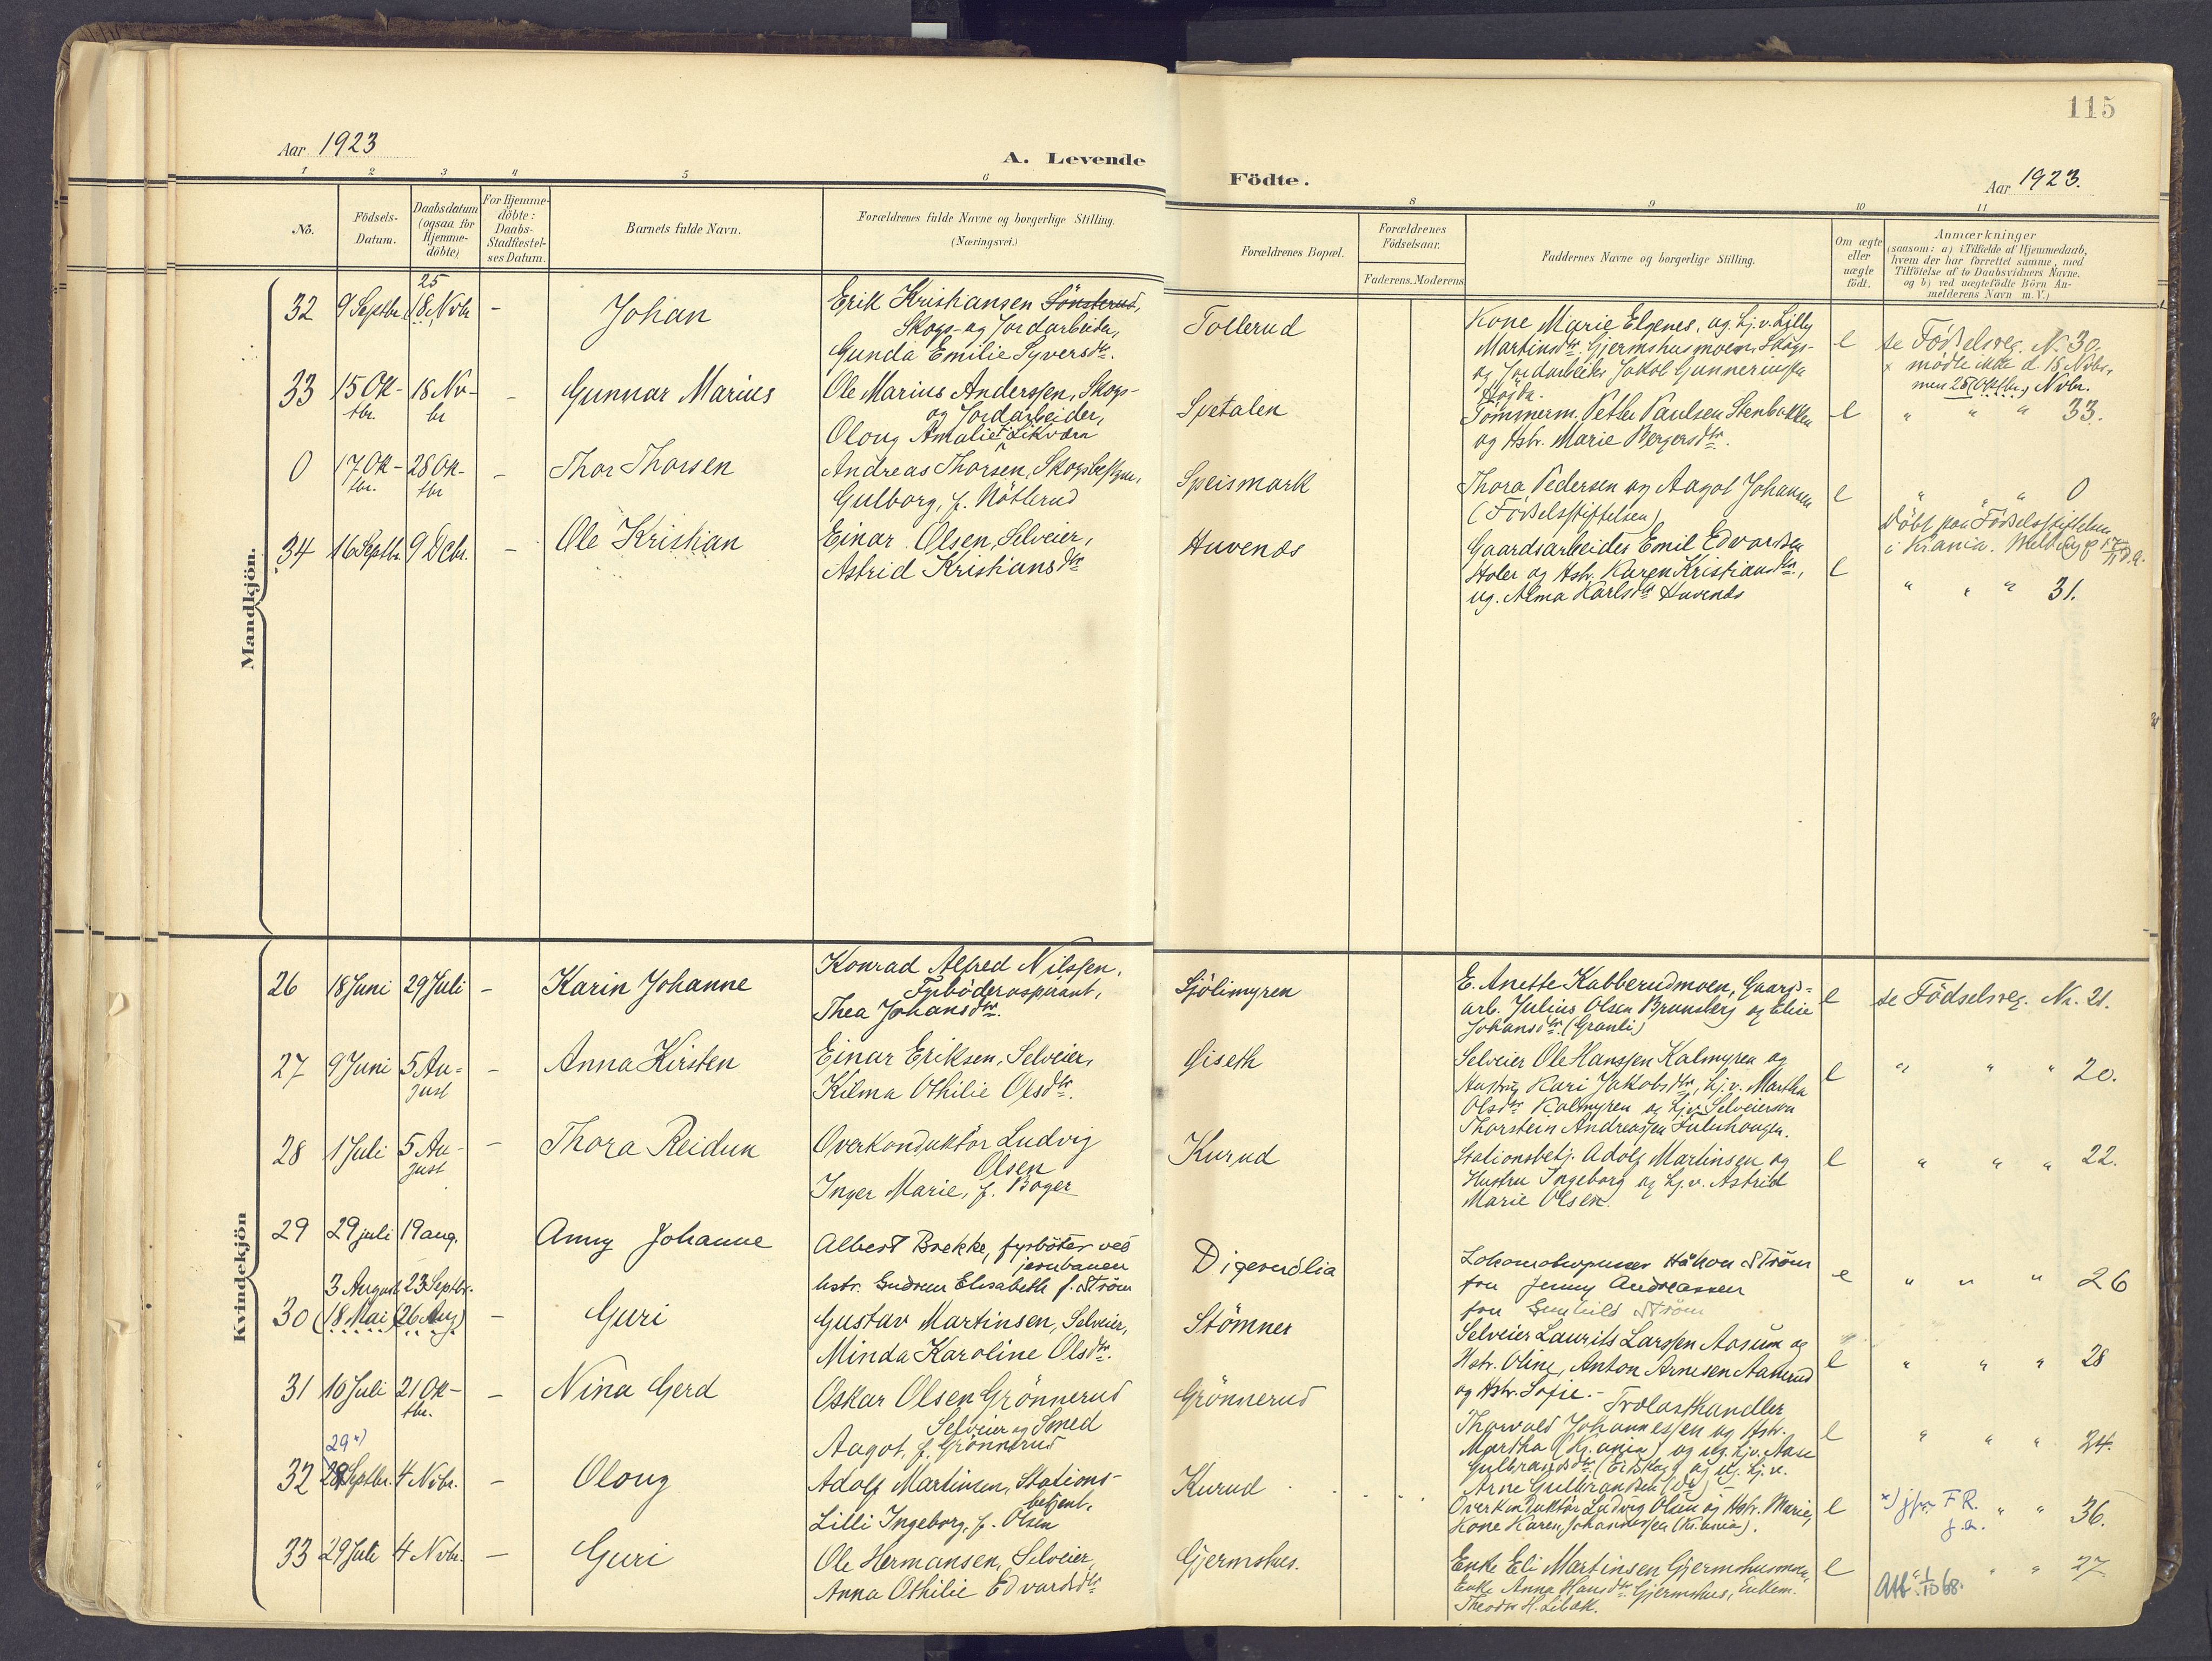 115
Aar 1923
A. Levende
Födte.
Aar 1923.
1 2 3 4 5 6 8 9 10 11
No.
Födsels-Datum.
Daabsdatum (ogsaa for Hjemme-döbte)
For Hjemme-döbte: Daabs-Stadfæstel-ses Datum.
Barnets fulde Navn.
Forældrenes fulde Navne og borgerlige Stilling.
(Næringsvei.)
Forældrenes Bopæl.
Forældrenes Födselsaar.
Faderens. Moderens
Faddernes Navne og borgerlige Stilling.
Om ægte eller uægte födt.
Anmærkninger
(saasom: a) i Tilfælde af Hjemmedaab,
hvem der har forrettet samme, med
Tilföielse af to Daabsvidners Navne.
og b) ved uægtefödte Börn An-
melderens Navn m. V.)
Mandkjön.
32 9 Septbr. 25 (18 Nvbr - Johan
Erik Kristiansen Sönsterud,
Skogs- og Jordarbeider,
Gunda Emilie Syversdtr.
Tollerud
Kone Marie Elgenes, ug. hj.v. Lilly
Martinsdtr. Gjermshusmoen, Skogs-
og Jordarbeider Jakob Gunneriussen
e
se Födselsreg. N. 30.
x mödte ikke d. 18 Nvbr.,
men 25 (Oktbr.) Nvbr.
33 15 Ok-tbr. 18 Nv-br - Gunnar Marius
Ole Marius Anderssen, Skogs-
og Jordarbeider,
Oloug Amalie f. Likværn
Spetalen
Tömmerm. Petter Paulsen Stenbakken
og Hstr. Marie Bergersdtr.
e
" " " 33.
0 17 Ok-tbr. 28 Ok-tbr - Thor Thorsen
Andreas Thorsen, Skogsbestyrer,
Gulborg, f. Nötterud
Speismark
Thora Pedersen og Aagot Johansen
(Födselsstiftelsen)
e
" " " 0
Döbt paa Födselsstiftelsen
i Kr.ania.
34 16 Septbr. 9 Dcbr. - Ole Kristian
Einar Olsen, Selveier,
Astrid Kristiansdtr
Huvenæs
Gaardsarbeider Emil Edvardsen
Holer og Hstr. Karen Kristiansdtr.,
ug. Alma Karlsdtr Huvenæs
e
" " " 31.
Kvindekjön
26 18 Juni 29 Juli - Karin Johanne
Konrad Alfred Nilssen,
Fyrböderaspirant,
Thea Johansdtr.
Sjölimyren
E. Anette Kabberudmoen, Gaards-
arb. Julius Olsen Brunsberg og Elise
Johansdtr. (Granli)
e
se Födselsreg. Nr. 21.
27 9 Juni 5 Au-gust - Anna Kirsten
Einar Eriksen, Selveier,
Kilma Othilie Olsdtr.
Öiseth
Selveier Ole Hanssen Kalmyren og
Hustru Kari Jakobsdtr, hj.v. Martha
Olsdtr Kalmyren og hjv. Selveiersön
Thorstein Andreassen Fuluhaugen.
e
" " " 20.
28 1 Juli 5 Au-gust - Thora Reidun
Overkonduktör Ludvig
Olsen
Inger Marie, f. Boger
Kurud
Stationsbetj. Adolf Martinsen og
Hustru Ingeborg og hj.v. Astrid
Marie Olsen.
e
" " " 22.
29 29 juli 19 aug. - Anny Johanne
Albert Brekke, fyrböter ved
jernbanen
hstr. Gudrun Elisabeth f. Ström
Digerudlia
Lokomotivpusser Håkon Ström
fru Jenny Andreassen
fru Gunhild Ström
e
" " " 26
3 August 23 Septbr.
30 (18 Mai) (26 Aug) - Guri
Gustav Martinsen, Selveier,
Minda Karoline Olsdtr.
Stömner
Selveier Laurits Larssen Aasum og
Hstr. Oline, Anton Arnesen Aamrud
og Hstr. Sofie. -
e
" " " 28
31 10 Juli 21 Ok-tbr. - Nina Gerd
Oskar Olsen Grönnerud
Selveier og Smed
Aagot, f. Grönnerud
Grönnerud
Trælasthandler
Thorvald Johannessen og Hstr.
Martha (Kr.ania) og ug. hjv. Aase
Gulbrandsdtr. (Eidskog) og ug. hj.v.
Arne Gulbrandsen (do) -
e
" " " 24.
29 x)
32 28 Septbr. 4 Nvbr. - Oloug
Adolf Martinsen, Stations-
betjent,
Lilli Ingeborg, f. Olsen
Kurud
Overkonduktör Ludvig Olsen og Hstr. Marie,
Kone Karen Johannessen (Kr.ania).
e
x) jfr. F.R. " " 36.
33 29 Juli 4 Nvbr. - Guri
Ole Hermansen, Selveier,
Anna Othilie Edvardsdtr
Gjermshus.
Enke Eli Martinsen Gjermshusmoen,
Enke Anna Hansdtr. Gjermshus, Enkem.
Theodor H. Libæk.
e
" " 27
Att. 1/10 68.